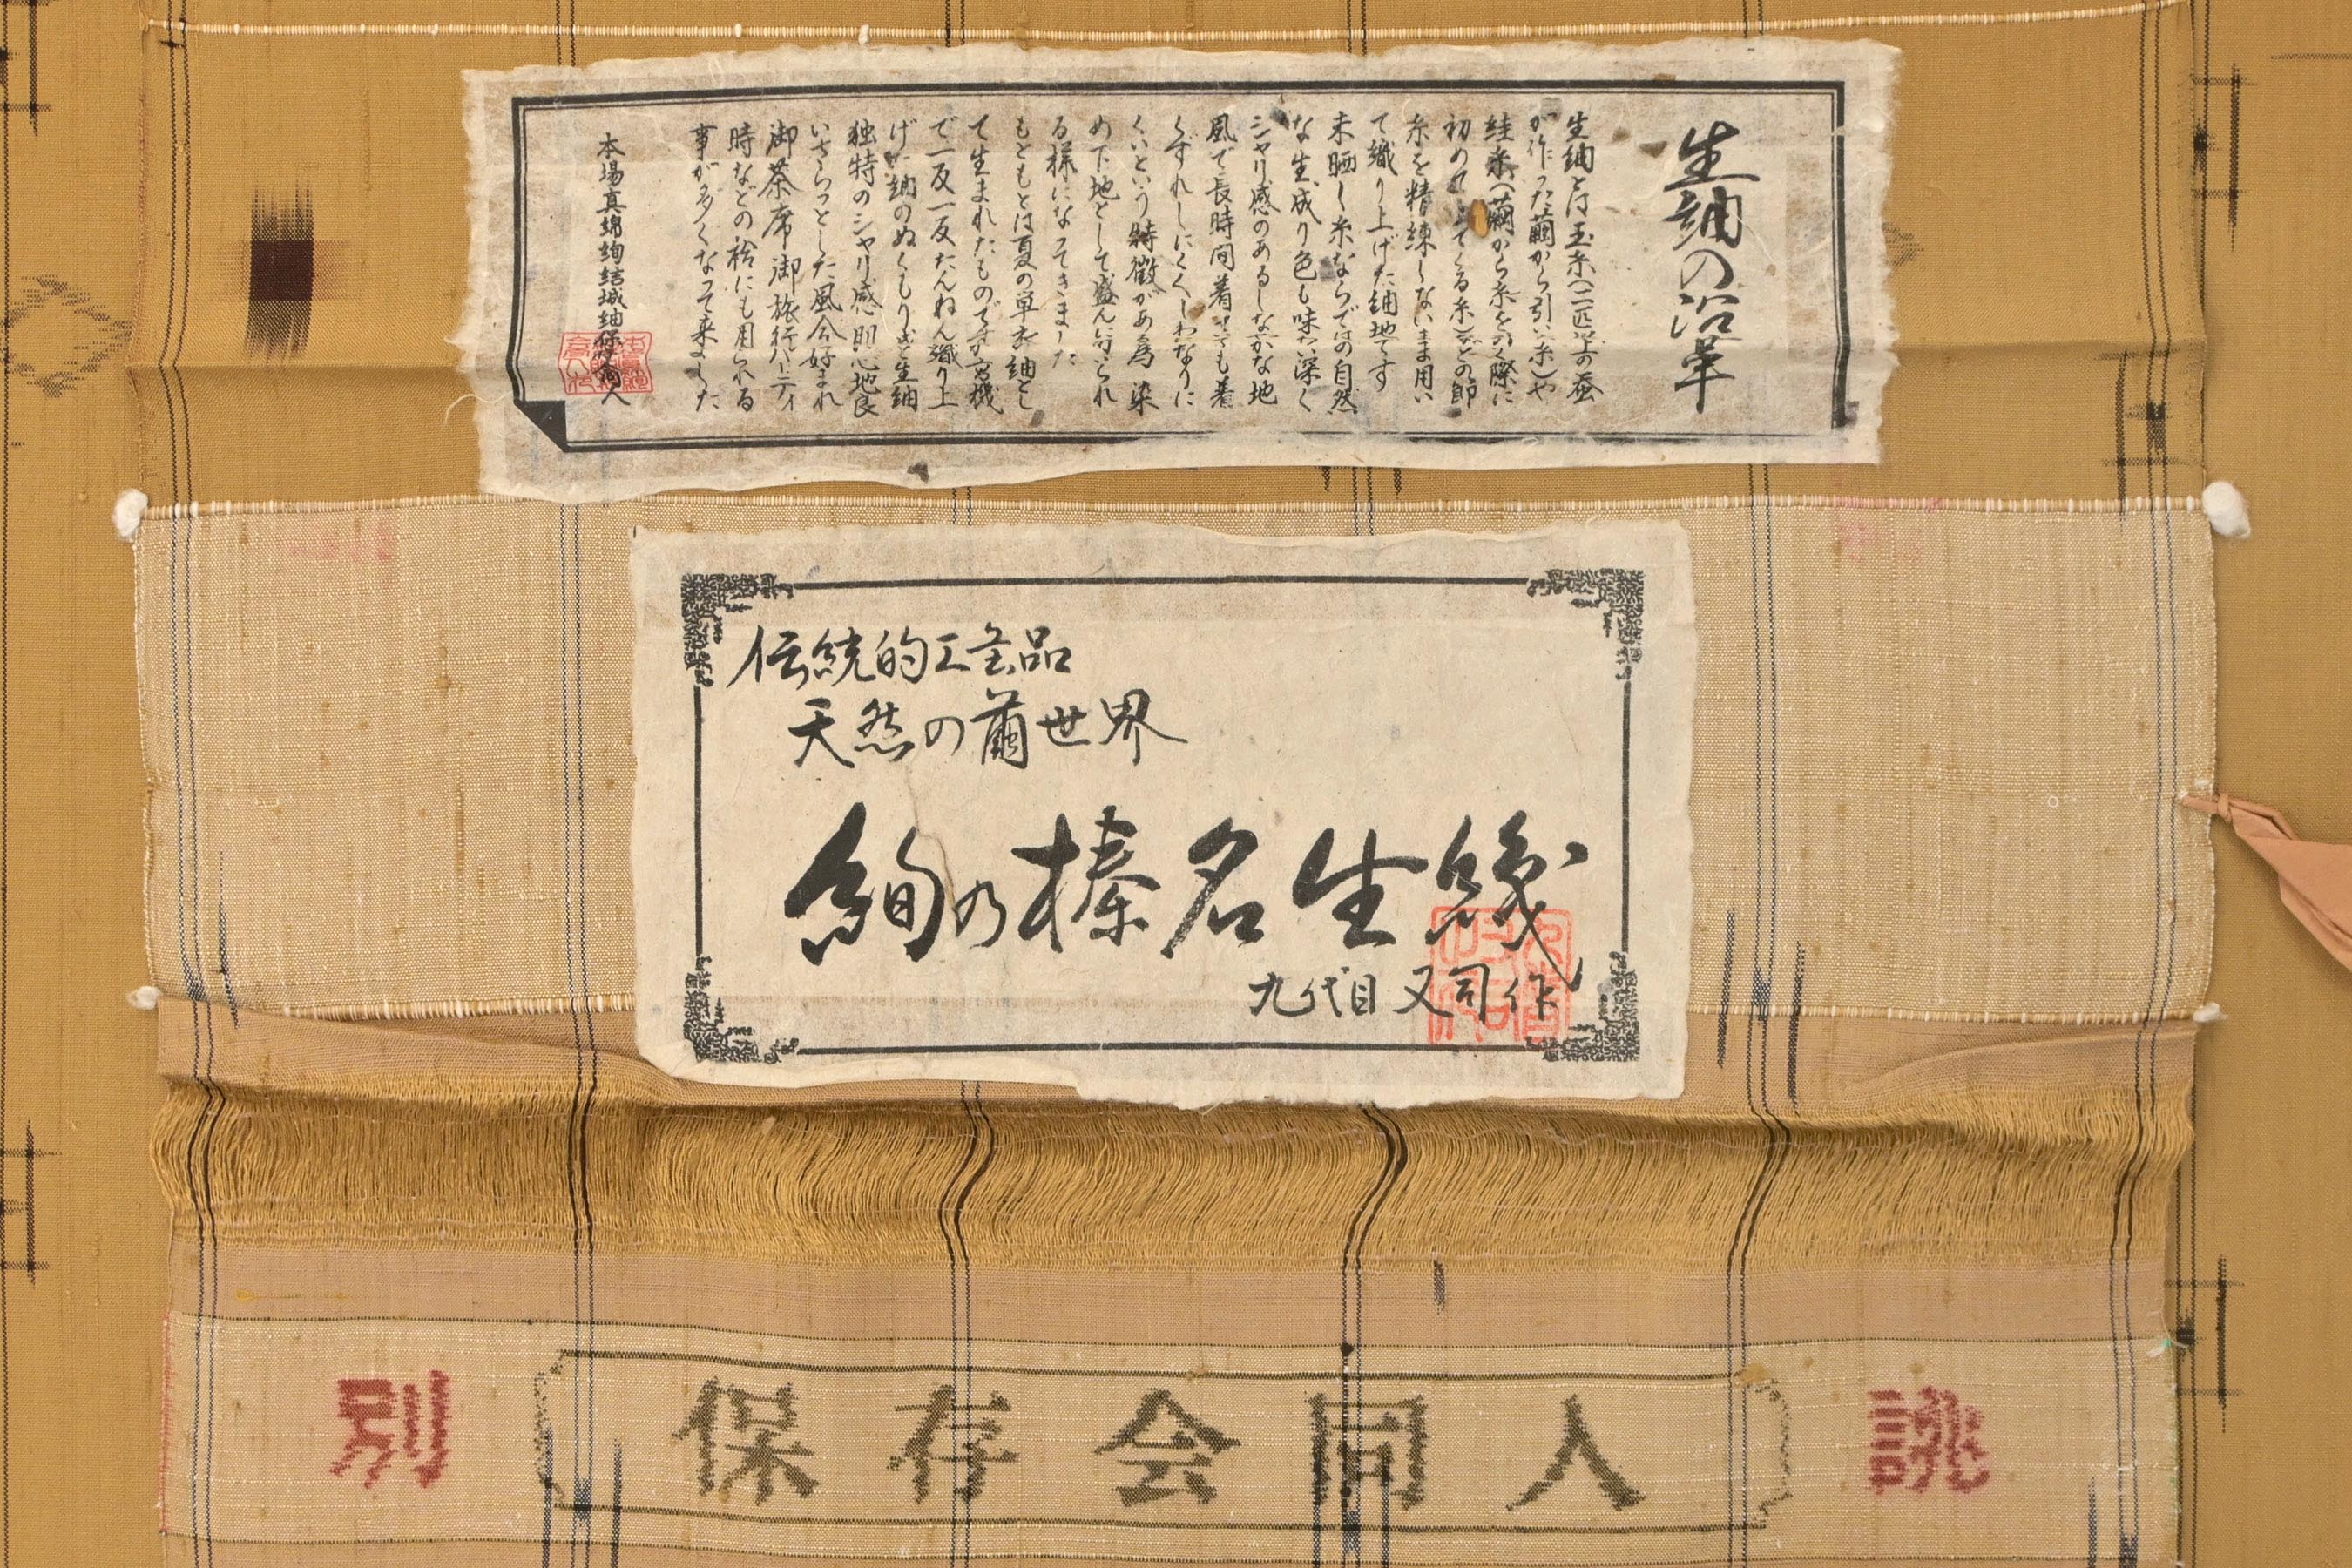 生紬の沿革
生紬とは玉糸(二匹以上の蚕
が作った繭から引いた糸)や
絓糸(繭から糸をひく際に
初めに出てくる糸)などの節
糸を精練しないまま用い
て織り上げた紬地です
未晒し糸ならではの自然
な生成り色も味わ深く
シャリ感のあるしなやかな地
風で長時間着ていても着
くずれしにくくしわなりに
くいという特徴があり為 染
め下地として盛んに用いられ
る様になってきました
もともとは夏の単衣紬とし
て生まれたものですが高機
で一反一反たんねんに織り上
げた紬のぬくもりと生紬
独特のシャリ感即心地良
いさらっとした風合が好まれ
御茶席御旅行パーティ
時などの袷にも用られる
事が多くなって来ました
本場真綿絢結城紬保存会同人
伝統的工芸品
天然の繭世界
絢乃榛名生紬
九代目 又司 作
別 保存会同人 誂